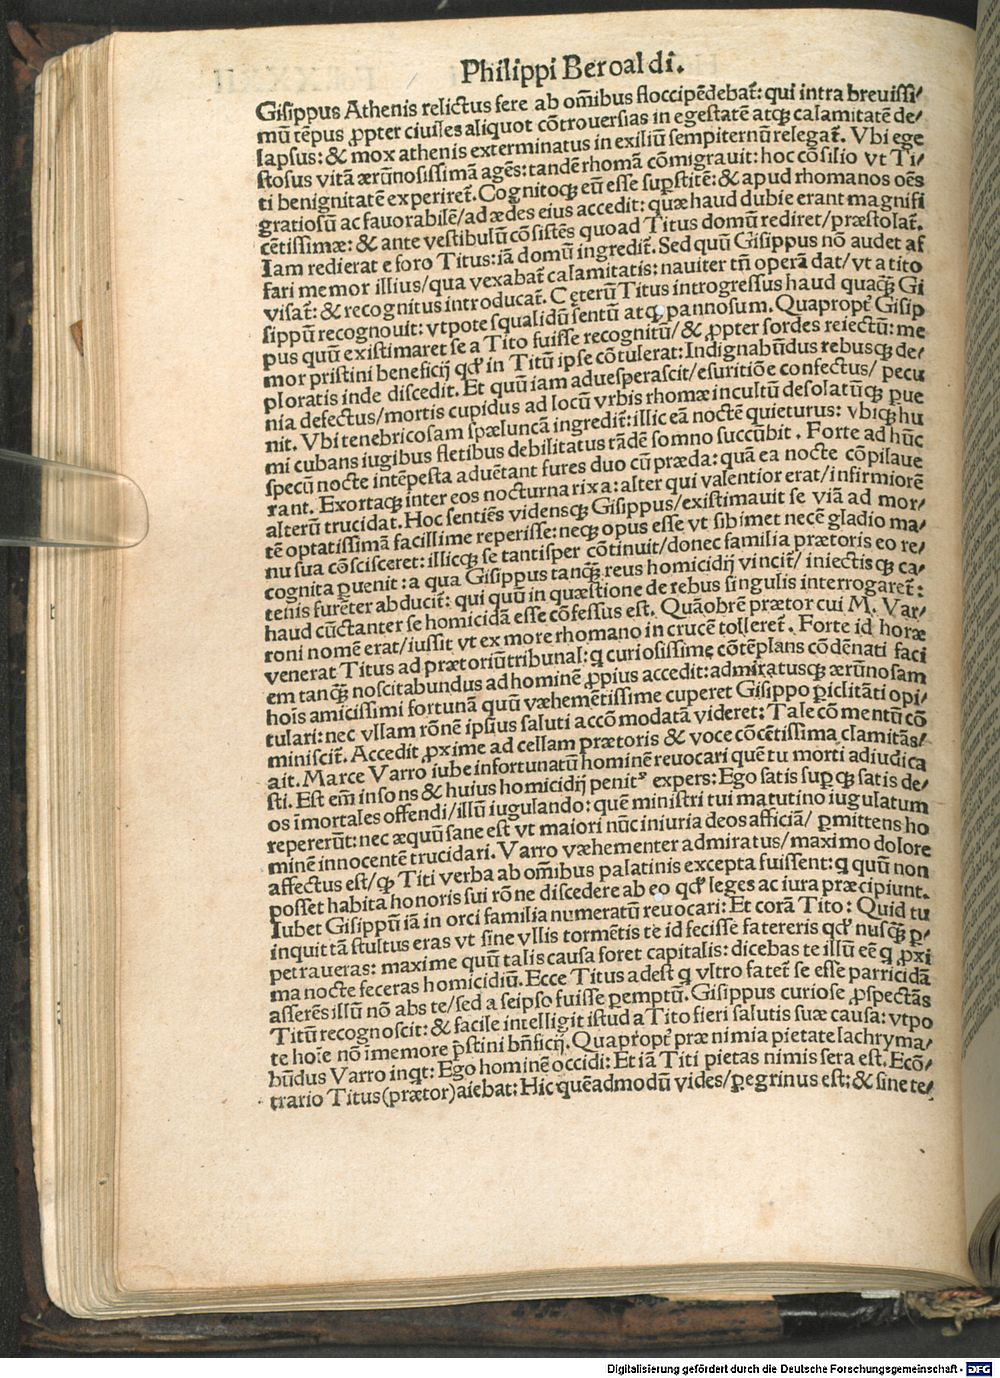 Philippi Beroaldi.
Gisippus Athenis relictus fere ab om̄ibus floccipēdebat᷑: qui intra breuissi⸗
mū tēpus ꝓpter ciuiles aliquot cōtrouersias in egestatē atqꝫ calamitatē de⸗
lapsus: & mox athenis exterminatus in exiliū sempiternū relegat᷑. Vbi ege
stosus vitā ærūnosissimā agēs: tandē rhomā cōmigrauit: hoc cōsilio vt Ti⸗
ti benignitatē experiret᷑. Cognitoqꝫ eū esse suꝑstitē: & apud rhomanos oēs
gratiosū ac fauorabilē/ad ædes eius accedit: quæ haud dubie erant magnifi
cētissimæ: & ante vestibulū cōsistēs quoad Titus domū rediret/præstolat᷑.
Iam redierat e foro Titus: iā domū ingredit᷑. Sed quū Gisippus nō audet af
fari memor illius/qua vexabat᷑ calamitatis: nauiter tn̄ operā dat/vt a tito
visat᷑: & recognitus introducat᷑. Ceterū Titus introgressus haud quaqꝫ̄ Gi
sippū recognouit: vtpote squalidū sentū atqꝫ pannosum. Quapropt᷑ Gisip
pus quū existimaret se a Tito fuisse recognitū/ & ꝓpter sordes reiectū: me
mor pristini beneficij qd̓ in Titū ipse cōtulerat: Indignabūdus rebusqꝫ de⸗
ploratis inde discedit. Et quū iam aduesperascit/esuritiōe confectus/ pecu
nia defectus/mortis cupidus ad locū vrbis rhomæ incultū desolatūqꝫ ꝑue
nit. Vbi tenebricosam spæluncā ingredit᷑: illic eā noctē quieturus: vbiqꝫ hu
mi cubans iugibus fletibus debilitatus tādē somno succūbit. Forte ad hūc
specū nocte intēpesta aduētant fures duo cū præda: quā ea nocte cōpilaue
rant. Exortaqꝫ inter eos nocturna rixa: alter qui valentior erat/infirmiorē
alterū trucidat. Hoc sentiēs vidensqꝫ Gisippus/existimauit se viā ad mor⸗
tē optatissimā facillime reperisse: neqꝫ opus esse vt sibimet necē gladio ma⸗
nu sua cōscisceret: illicqꝫ se tantisper cōtinuit/donec familia prætoris eo re⸗
cognita ꝑuenit: a qua Gisippus tanqꝫ̄ reus homicidij vincit᷑/ iniectisqꝫ ca⸗
tenis furēter abducit᷑: qui quū in quæstione de rebus singulis interrogaret᷑:
haud cūctanter se homicidā esse cōfessus est. Quāobrē prætor cui M. Var⸗
roni nomē erat/iussit vt ex more rhomano in crucē tolleret᷑. Forte id horæ
venerat Titus ad prætoriū tribunal: q̇ curiosissime cōtēplans cōdēnati faci
em tanqꝫ̄ noscitabundus ad hominē ꝓpius accedit: admiratusqꝫ ærūnosam
hoīs amicissimi fortunā quū væhemētissime cuperet Gisippo ꝑiclitāti opi⸗
tulari: nec vllam rōnē ipsius saluti accōmodatā videret: Tale cōmentū cō
miniscit᷑. Accedit ꝓxime ad cellam prætoris & voce cōcētissima clamitās⸗
ait. Marce Varro iube infortunatū hominē reuocari quē tu morti adiudica
sti. Est em̄ insons & huius homicidij penitꝰ expers: Ego satis suꝑqꝫ satis de⸗
os īmortales offendi/illū iugulando: quē ministri tui matutino iugulatum
repererūt: nec æquū sane est vt maiori nūc iniuria deos afficiā/ ꝑmittens ho
minē innocentē trucidari. Varro væhementer admiratus/maximo dolore
affectus est/qꝫ Titi verba ab om̄ibus palatinis excepta fuissent: q̇ quū non
posset habita honoris sui rōne discedere ab eo qd̓ leges ac iura præcipiunt.
Iubet Gisippū iā in orci familia numeratū reuocari: Et corā Tito: Quid tu
inquit tā stultus eras vt sine vllis tormētis te id fecisse fatereris qd̓ nusqꝫ̄ ꝑ⸗
petraueras: maxime quū talis causa foret capitalis: dicebas te illū eē q̇ ꝓxi
ma nocte feceras homicidiū. Ecce Titus adest q̇ vltro fatet᷑ se esse parricidā
asserēs illū nō abs te/sed a seipso fuisse ꝑemptū. Gisippus curiose ꝓspectās
Titū recognoscit: & facile intelligit istud a Tito fieri salutis suæ causa: vtpo
te hoīe nō īmemore p̄stini bn̄ficij. Quapropt᷑ præ nimia pietate lachryma⸗
būdus Varro inqt: Ego hominē occidi: Et iā Titi pietas nimis sera est. Ecō⸗
trario Titus (prætor) aiebat: Hic quēadmodū vides/ꝑegrinus est: & sine te⸗
Digitalisierung gefördert durch die Deutsche Forschungsgemeinschaft - DFG